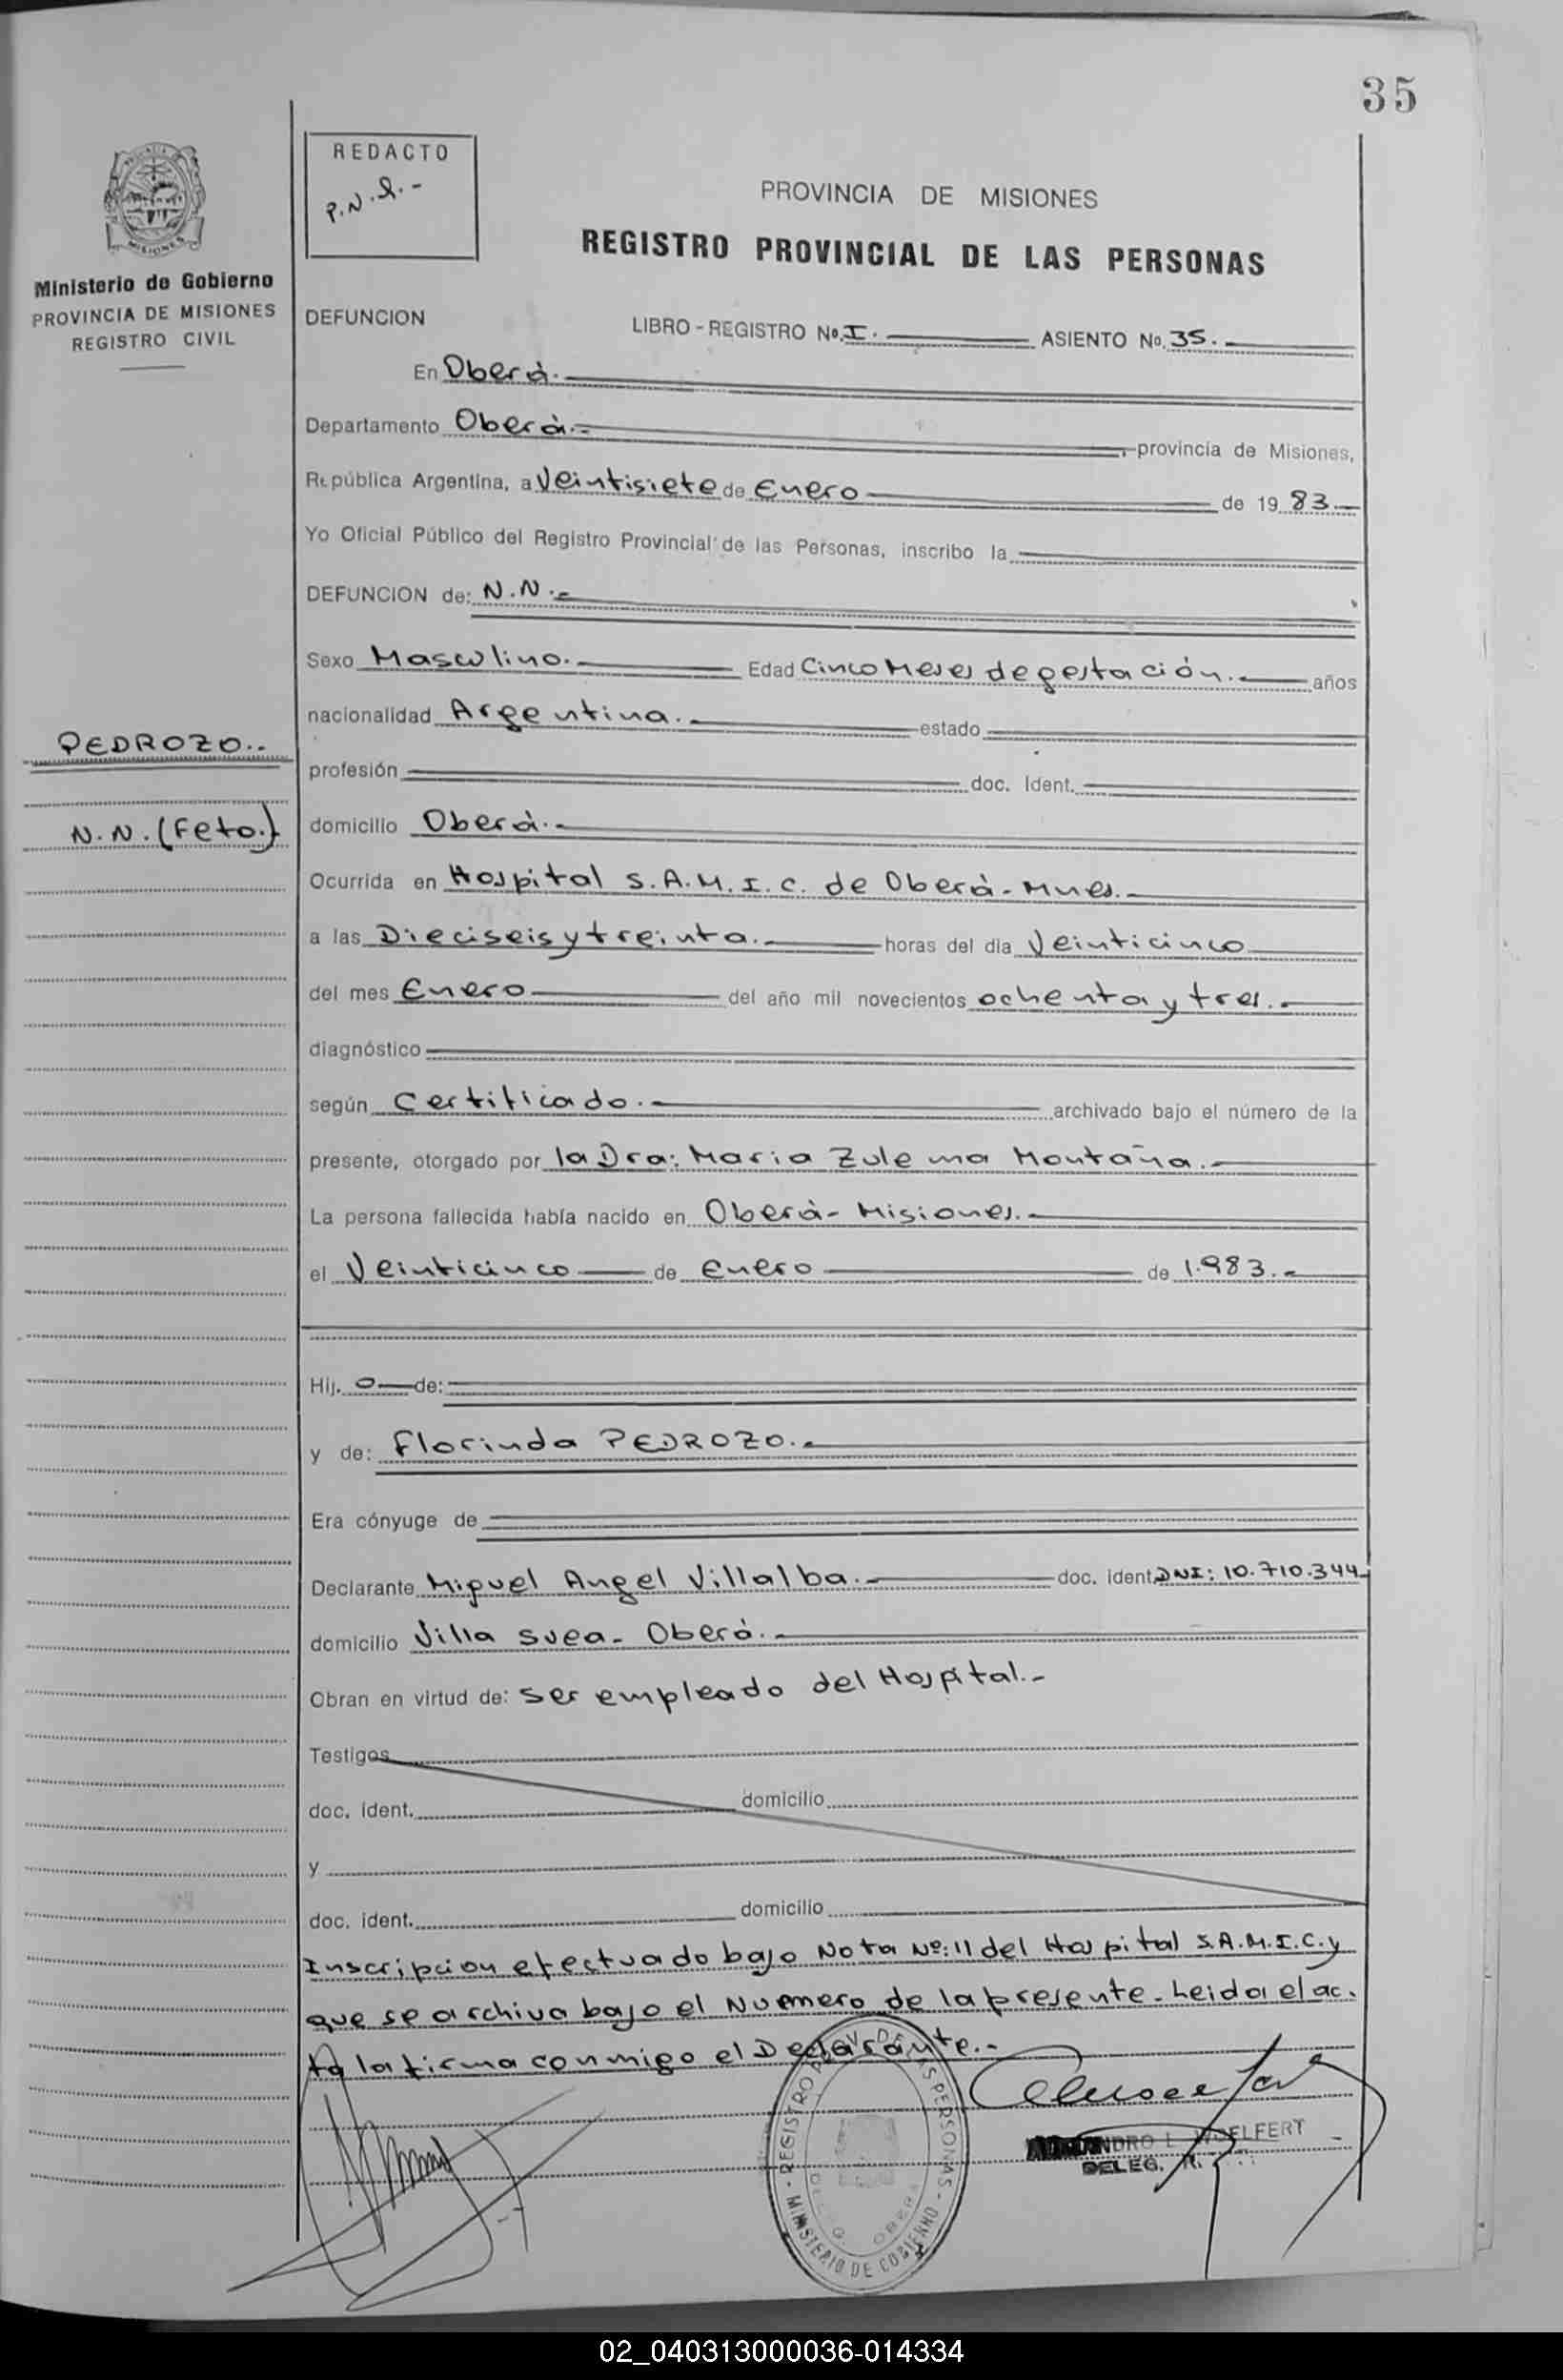 35
REDACTO
P.N.S.-
PROVINCIA DE MISIONES
REGISTRO PROVINCIAL DE LAS PERSONAS
Ministerio de Gobierno
PROVINCIA DE MISIONES
REGISTRO CIVIL
DEFUNCION LIBRO - REGISTRO No. I. ASIENTO No. 35.
En Oberà.
Departamento Oberà.- , provincia de Misiones,
República Argentina, a Veintisiete de Enero de 19 83.-
Yo Oficial Público del Registro Provincial de las Personas, inscribo la
DEFUNCION de: N.N.-
Sexo Masculino. Edad Cinco Meses de gestación. años
nacionalidad Argentina. estado
PEDROZO..
profesión doc. Ident.
N.N. (Feto.)
domicilio Oberà.-
Ocurrida en Hospital S.A.M.I.C. de Oberà-Mnes.
a las Dieciseis y treinta. horas del dia Veinticinco
del mes Enero del año mil novecientos ochenta y tres.-
diagnóstico
según Certificado.- archivado bajo el número de la
presente, otorgado por la Dra: Maria Zulema Montaña.-
La persona fallecida había nacido en Oberà- Misiones.-
el Veinticinco de Enero de 1.983.-
Hij. o de:
y de: Florinda PEDROZO.-
Era cónyuge de
Declarante Miguel Angel Villalba.- doc. ident. DNI: 10.710.344
domicilio Villa Svea- Oberà.-
Obran en virtud de: ser empleado del Hospital.-
Testigos
doc. ident. domicilio
y
doc. ident. domicilio
Inscripcion efectuado bajo Nota Nº:11 del Hospital S.A.M.I.C. y
que se archiva bajo el Numero de la presente- Leida el ac.
ta la firma conmigo el Declarante.-
WOELFERT
DELEG.
MINISTERIO DE GOBIERNO - REGISTRO PROV. DE LAS PERSONAS -
DELEG. OBERA
02_040313000036-014334